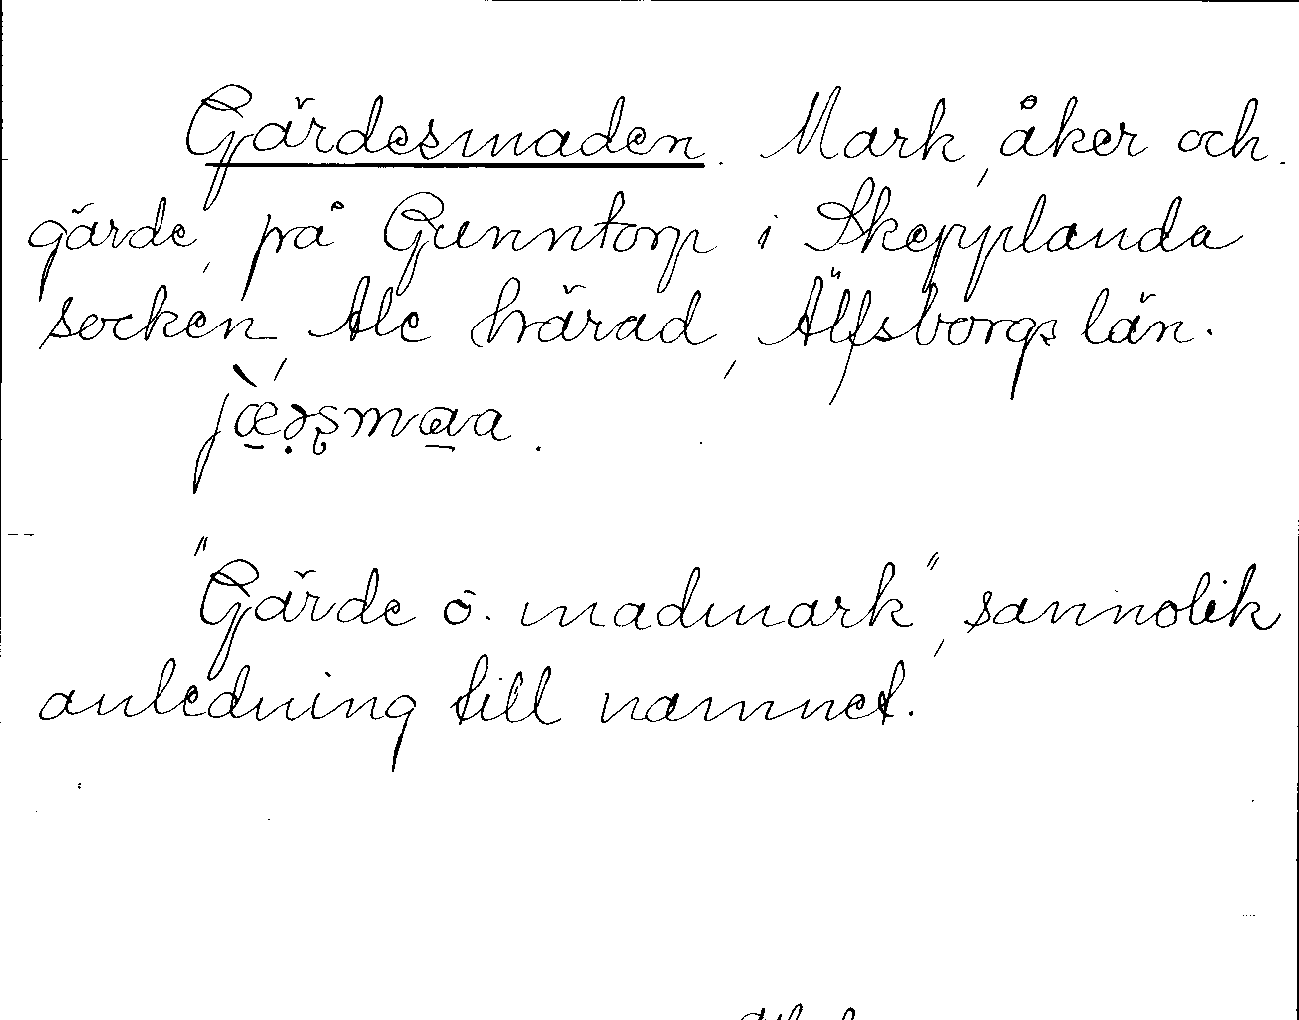 Gärdesmaden. Mark, åker och
gärde, på Gunntorp i Skepplanda
socken, Ale härad, Älfsborgs län.
"Gärde o. madmark", sannolik
anledning till namnet.